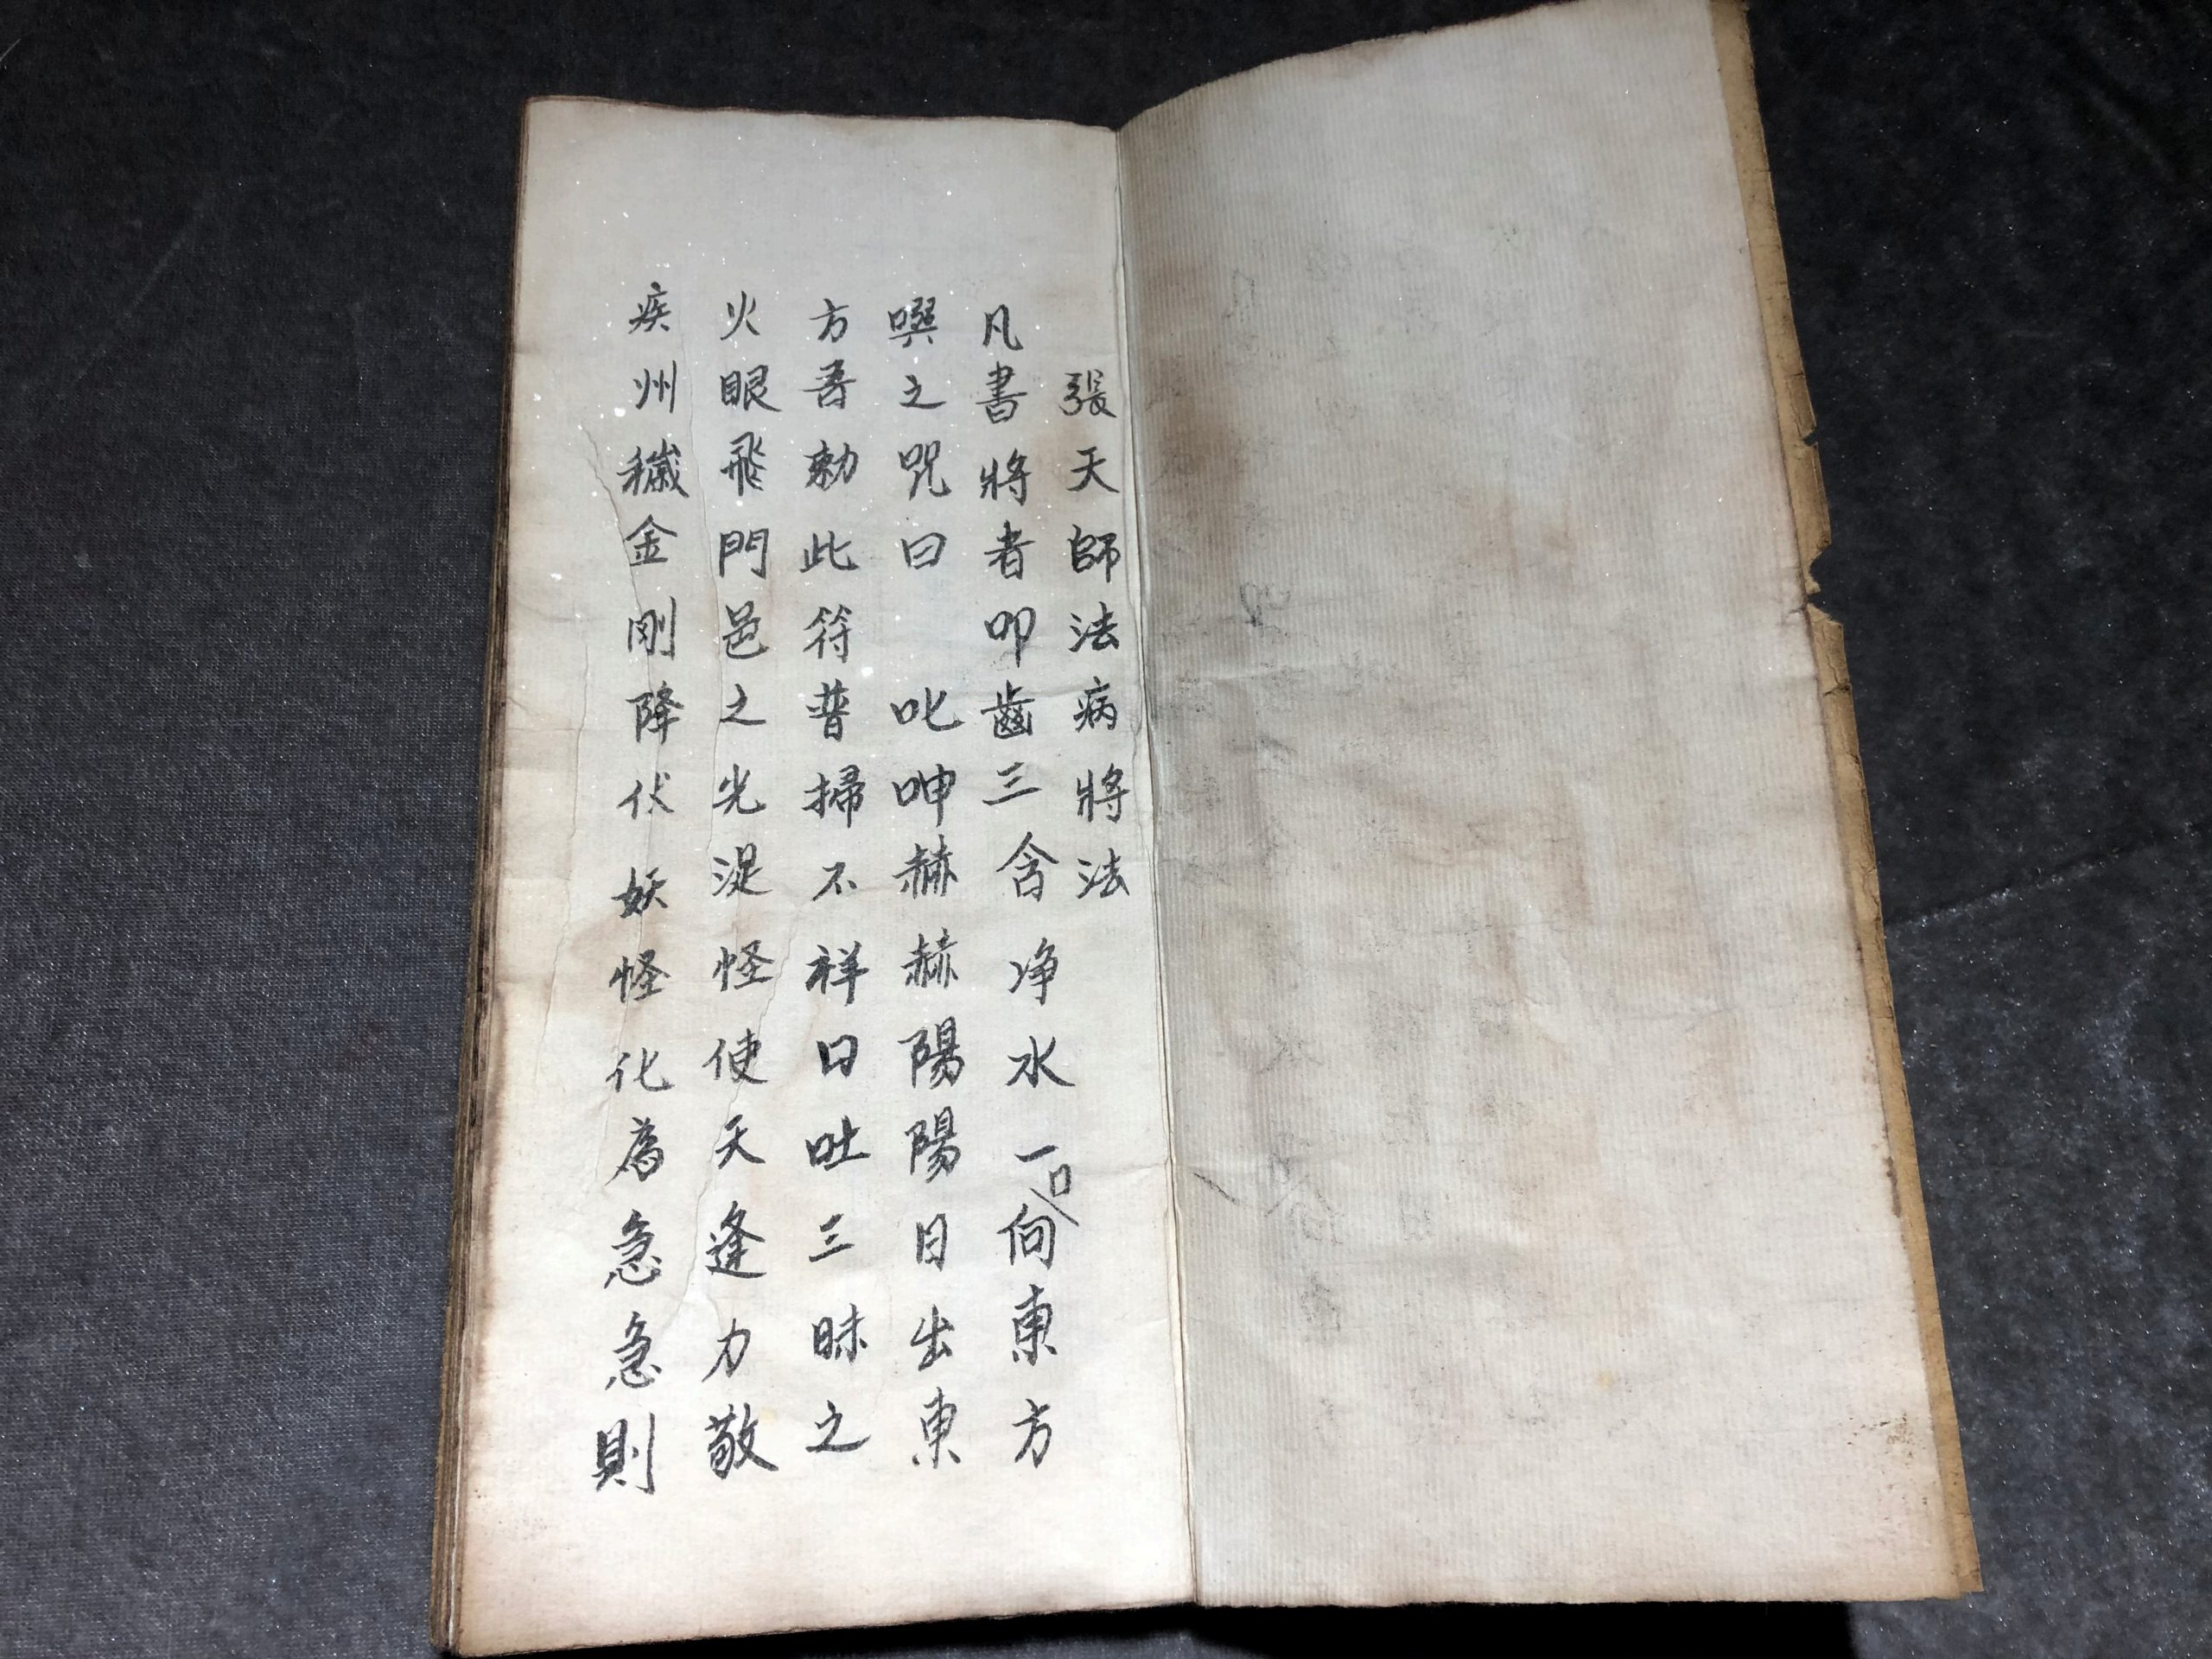 張天師法病將法
凡書將者叩齒三含净水一口向東方
噀之咒曰 叱呻赫赫陽陽日出東
方吾勅此符普掃不祥口吐三昧之
火眼飛門邑之光浞怪使天逢力敬
疾州穢金剛降伏妖怪化為急急則